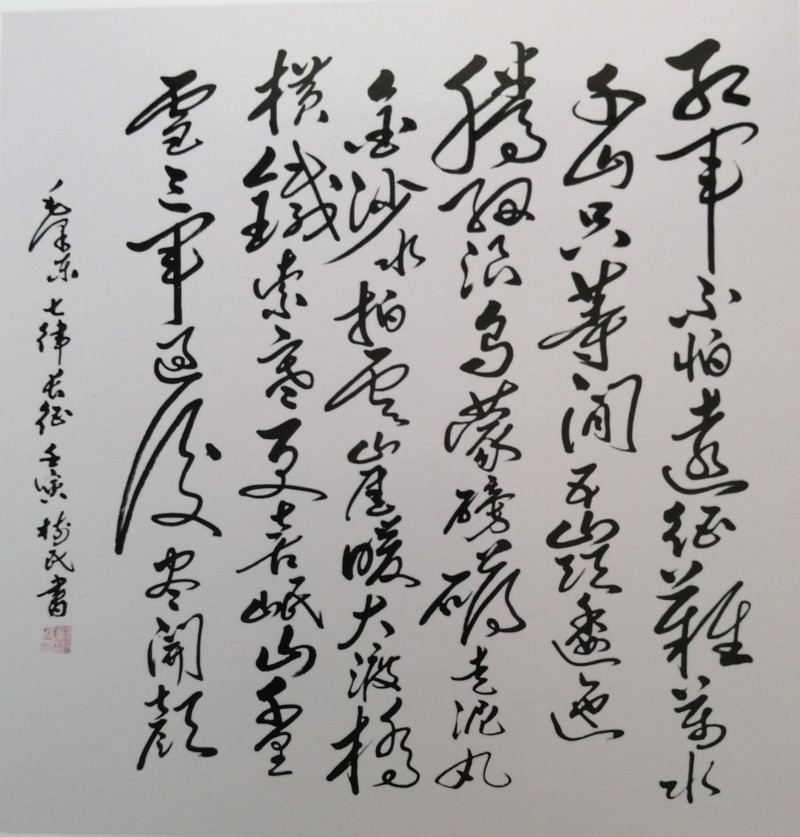 红軍不怕遠征難萬水
千山只等闲五嶺逶迤
腾细浪乌蒙磅礴走泥丸
金沙水拍云崖暖大渡桥
横鐵索寒更喜岷山千里
雪三軍过后尽開颜
毛泽东七律长征壬寅民書